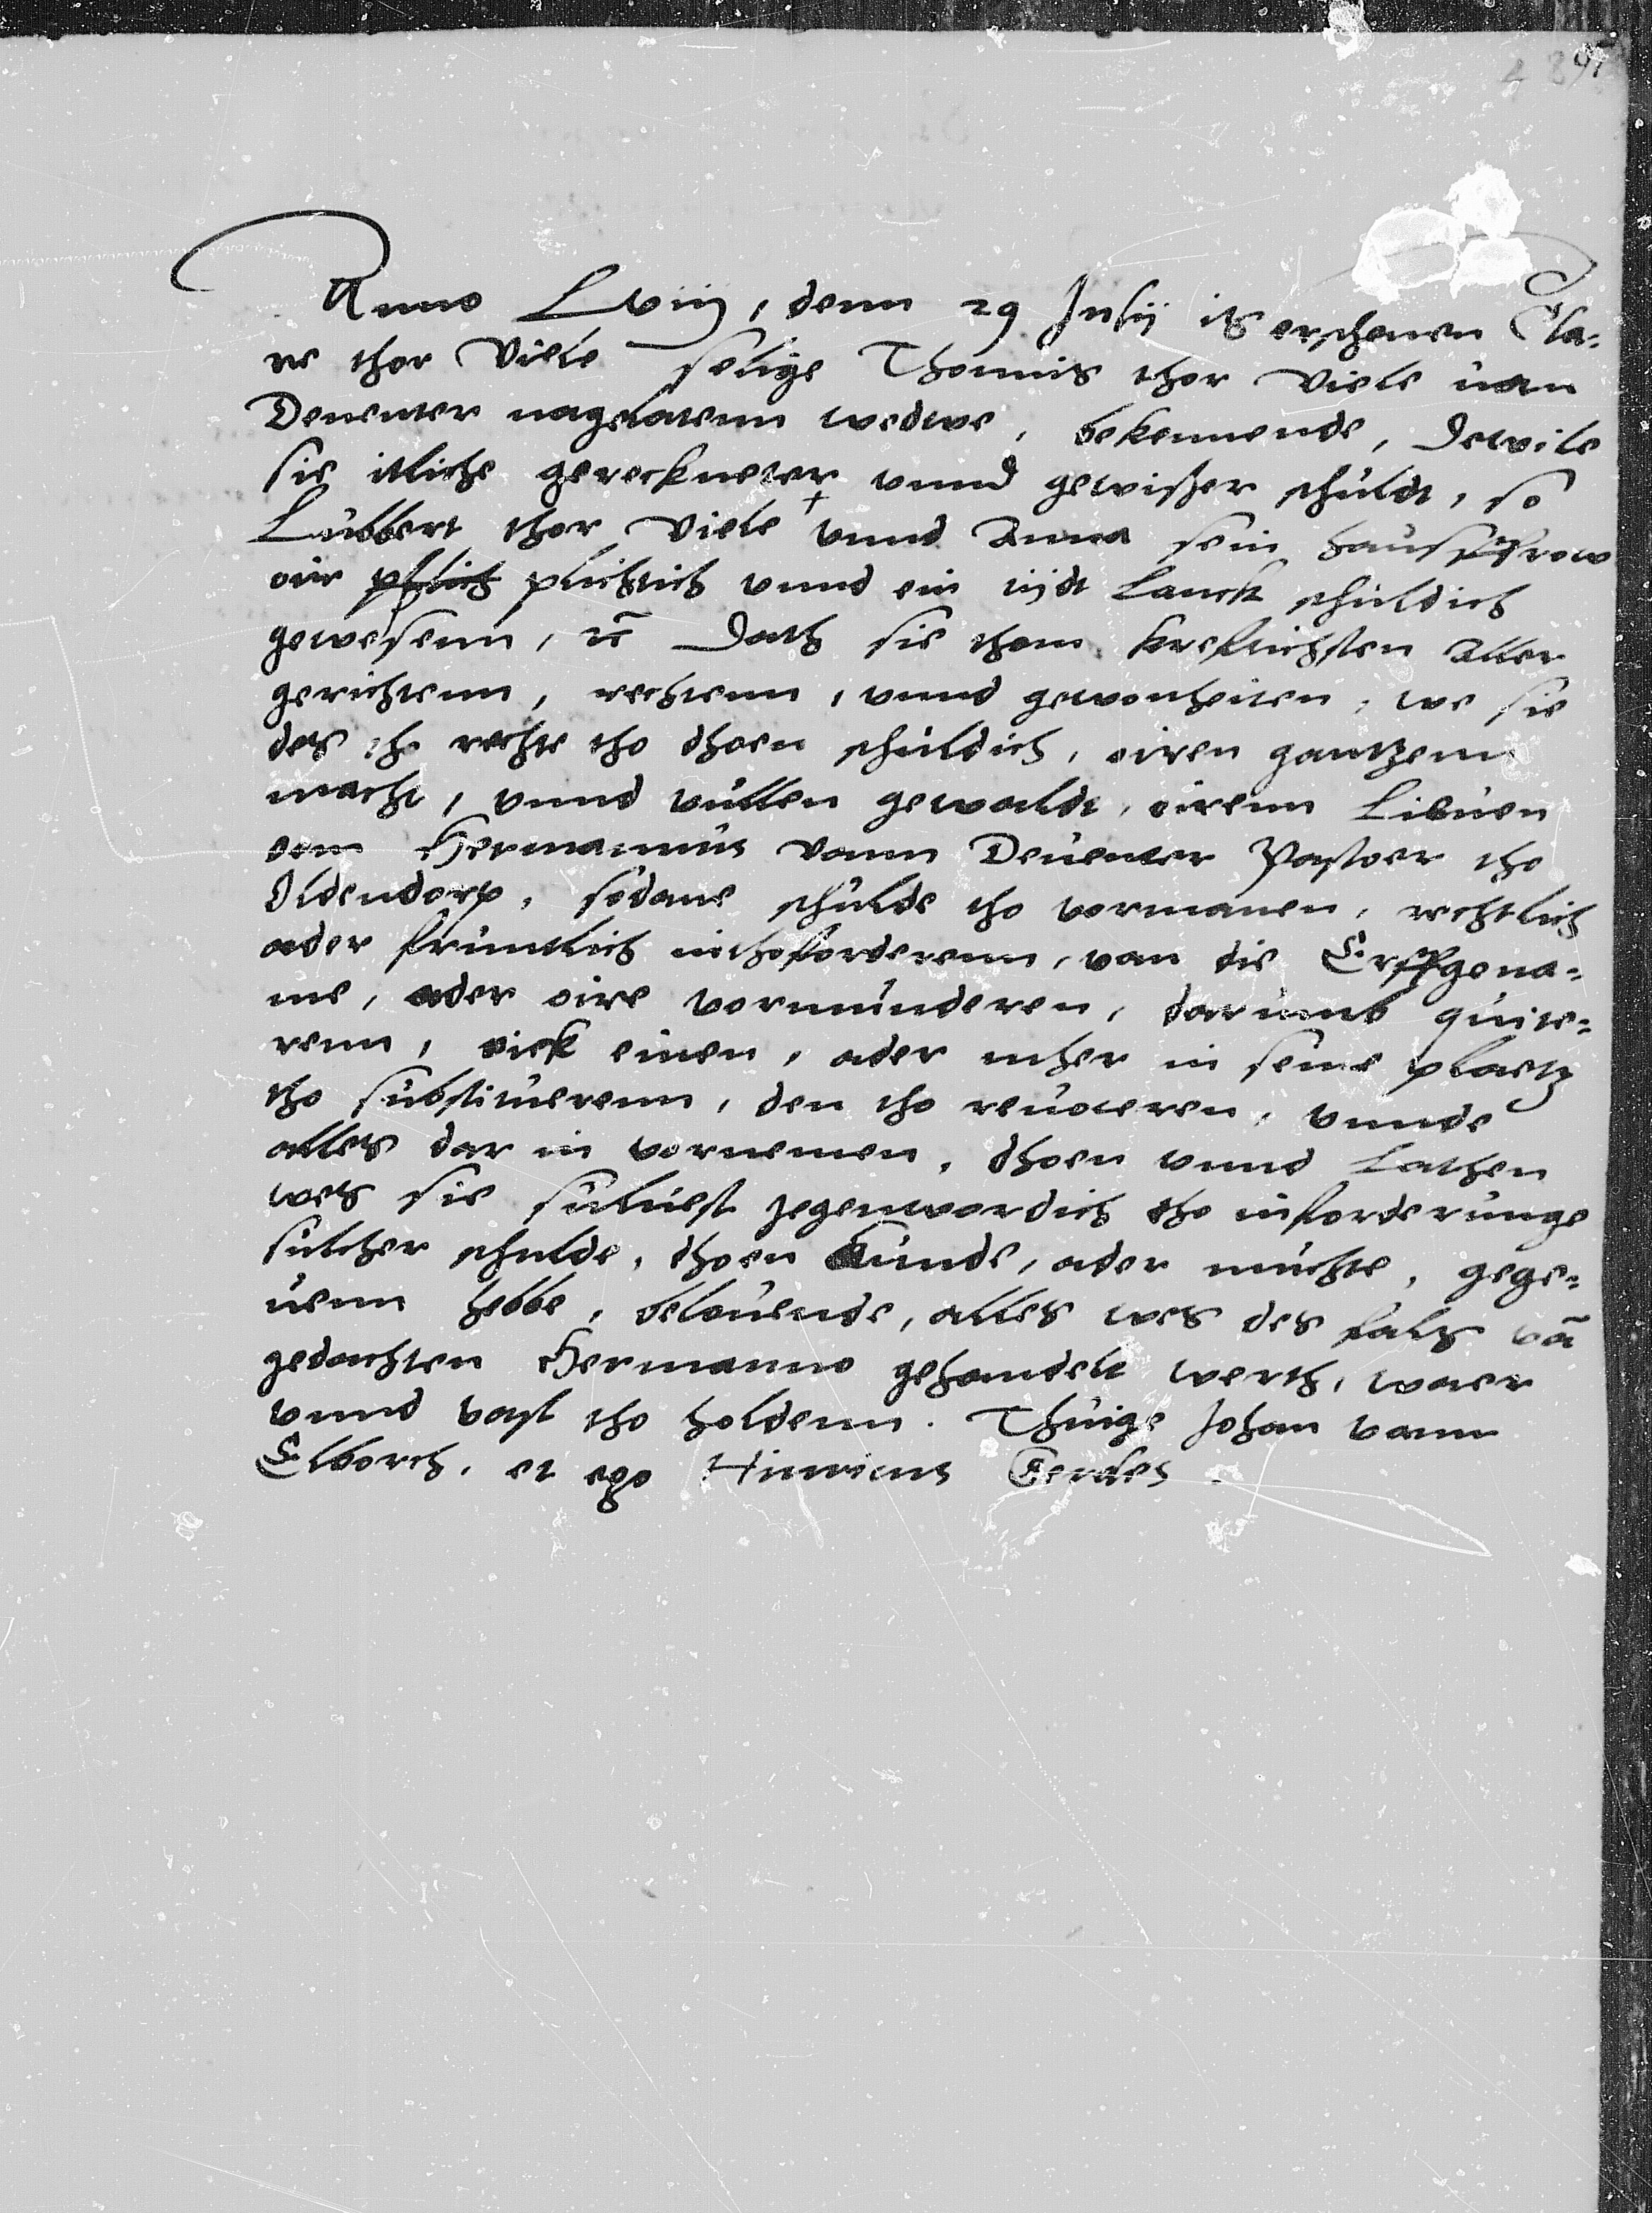 97
Anno Lviij, denn 29 Julij is erschenen Cla-
re thor Viele selige Thonnis thor Viele uan
Deuenter nagelatenn wedwe, bekennende, Dewile
sie itliche gereckneter vnnd gewisser schuldt, so
Lubbert thor Viele + vnnd Anna sein hausffrow
oir plich plichtich vnnd ein tijdt lanck schuldich
gewesenn, Doch sie thom krefftichsten aller
gerichtenn, rechtenn, vnnd gewonheiten, we sie
des tho rechte tho dhoen schuldich, oiren gantzenn
macht, vnnd vullen gewaldt, oirenn lieuen
oem Hermannus vann Deuenter Pastoer tho
Oldendorp, sodane schulde tho vormanen, rechtlich
ader fruntlich inthofforderenn, van die Erffgena-
me, ader oire vormunderen, darumb quite-
renn, oick einen, ader mher in seine plaetz
tho substituerenn, den tho reuoceren, vnnde
alles dar in vornemen, dhoen vnnd lathen
wes sie suluest jegenwordich tho infforderunge
sulcher schulde, dhoen kunde, ader muchte, gege-
uenn hebbe, belouende, alles wes des fals vā
gedachten Hermanno gehandelt werth, waer
vnnd vast tho holdenn. Thuige Johan vann
Elborch, et ego Hinricus Gerdes.